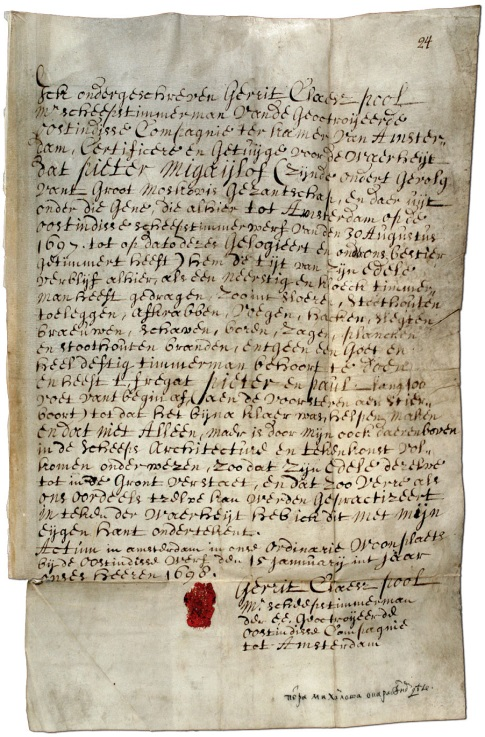 24
Ick ondergeschreven Gerrit Claesz pool
Mr scheepstimmerman vande Geoctroijeerde
oostindisse Compagnie ter kamer van Amster-
dam, Certificere en Getuijge voor de Waerheijt
dat Pieter Migaijlof (zijnde ondert Gevolg
vant Groot Moskovis Gezantschap, en daer uijt
onder die Gene, die alhier tot Amsterdam op de
oostindisse scheepstimmerwerf van den 30 Augustus
1697. tot op dato dezes Gelogeert en ond ons bestier
getimmert heeft) hem de tijt van zijn edele
verblijf alhier, als een neerstig en kloeck timmer-
man heeft gedragen, zoo int vloere, stoothouten
toeleggen, afkrabben, voegen, hacken, slegten
braeuwen, schawen, boren, zagen, plancken
en stoothouten branden, en tgeen een Goet en
heel deftig timmerman behoort te doen
en heeft t fregat Pieter en Paul lang 100
voet vant begin af (aen de voorsteven aen stier-
boort) tot dat het bijna klaer was, helpen maken
en dat niet Alleen, maer is door mijn oock daerenboven
in de scheeps Architecture en tekenkonst vol-
komen onderwezen, zoo dat zijn edele dezelve
tot in de Gront verstaet, en dat zoo verre als
ons oordeels tzelve kan werden Gepractizeert
In teken der Waerheijt heb ick dit met mijn
eijgen hant ondertekent.
Actum in amsterdam in onse ordinarie woonplaets
bij de oostindisse werf den 15 januarij int jaar
onses heeren 1698.
Gerrit Claesz pool
Mr scheepstimmerman
der ee. Geoctroijeerde
oostindisse Compagnie
tot Amsterdam